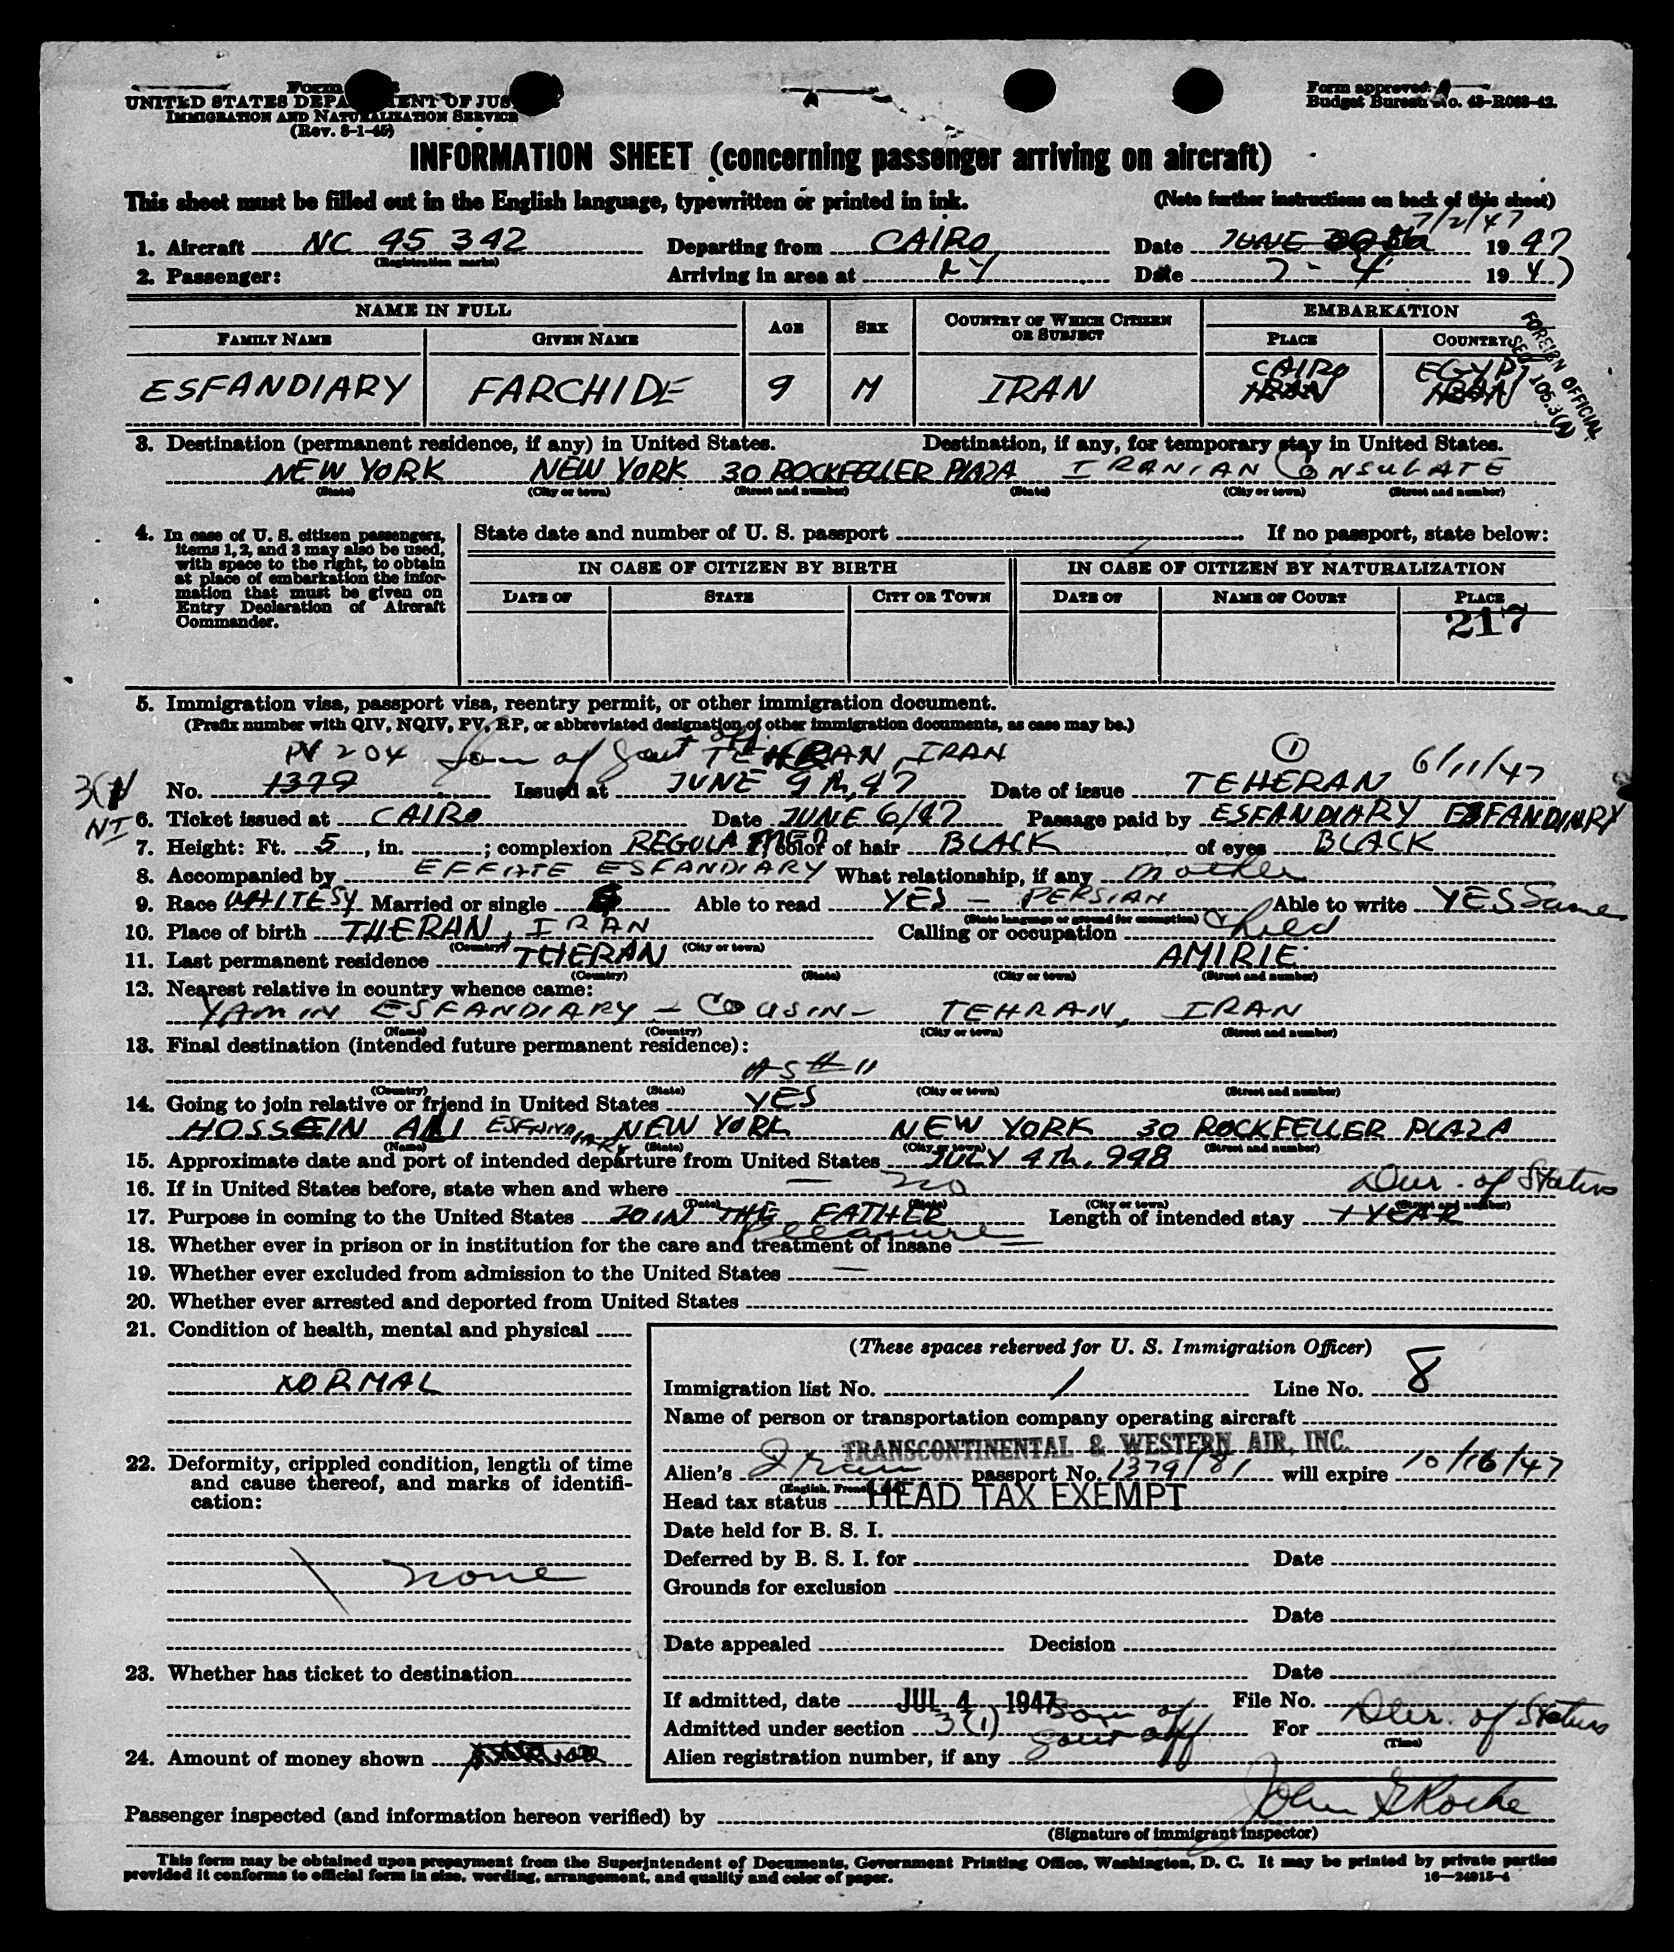 Form
UNITED STATES DEPARTMENT OF JUSTICE
IMMIGRATION AND NATURALIZATION SERVICE
(Rev. 8-1-45)
Form approved.
Budget Bureau No. 43-R063-42.
INFORMATION SHEET (concerning passenger arriving on aircraft)
This sheet must be filled out in the English language, typewritten or printed in ink.
(Note further instructions on back of this sheet)
7/2/47
1. Aircraft NC 45 342 Departing from CAIRO Date JUNE 1947
(Registration marks)
2. Passenger: Arriving in area at NY Date 7-4 1947
NAME IN FULL AGE SEX COUNTRY OF WHICH CITIZEN OR SUBJECT EMBARKATION
FAMILY NAME GIVEN NAME PLACE COUNTRY
FOREIGN OFFICIAL
SEC 105.3(4)
CAIRO EGYPT
ESFANDIARY FARCHIDE 9 M IRAN IRAN IRAN
3. Destination (permanent residence, if any) in United States. Destination, if any, for temporary stay in United States.
NEW YORK NEW YORK 30 ROCKFELLER PLAZA IRANIAN CONSULATE
(State) (City or town) (Street and number) (State) (City or town) (Street and number)
4. In case of U. S. citizen passengers, items 1, 2, and 3 may also be used, with space to the right, to obtain at place of embarkation the information that must be given on Entry Declaration of Aircraft Commander.
State date and number of U. S. passport If no passport, state below:
IN CASE OF CITIZEN BY BIRTH IN CASE OF CITIZEN BY NATURALIZATION
DATE OF STATE CITY OR TOWN DATE OF NAME OF COURT PLACE
217
5. Immigration visa, passport visa, reentry permit, or other immigration document.
(Prefix number with QIV, NQIV, PV, RP, or abbreviated designation of other immigration documents, as case may be.)
PV 204 Son of Gout off. TEHERAN, IRAN 1 6/11/47
No. 1379 Issued at JUNE 9th, 47 Date of issue TEHERAN
3(1)
NI
6. Ticket issued at CAIRO Date JUNE 6/47 Passage paid by ESFANDIARY ESFANDIARY
7. Height: Ft. 5, in. ; complexion REGULA MED color of hair BLACK of eyes BLACK
8. Accompanied by EFFITE ESFANDIARY What relationship, if any mother
9. Race WHITE Sy Married or single S Able to read YES - PERSIAN Able to write YES Same
(State language or ground for exemption)
10. Place of birth THERAN, IRAN Calling or occupation Child
(Country) (City or town)
11. Last permanent residence THERAN AMIRIE
(Country) (State) (City or town) (Street and number)
12. Nearest relative in country whence came:
YAMIN ESFANDIARY - COUSIN - TEHRAN, IRAN
(Name) (Country) (City or town) (Street and number)
13. Final destination (intended future permanent residence):
AS # 11
(Country) (State) (City or town) (Street and number)
14. Going to join relative or friend in United States YES
HOSSEIN ALI ESFANDIARY NEW YORK NEW YORK 30 ROCKFELLER PLAZA
(Name) (State) (City or town) (Street and number)
15. Approximate date and port of intended departure from United States JULY 4th, 948
16. If in United States before, state when and where — no Dur. of Status
(Date) (State) (City or town) (Street and number)
17. Purpose in coming to the United States JOIN THE FATHER Length of intended stay 1 YEAR
pleasure
18. Whether ever in prison or in institution for the care and treatment of insane —
19. Whether ever excluded from admission to the United States —
20. Whether ever arrested and deported from United States
21. Condition of health, mental and physical
NORMAL
22. Deformity, crippled condition, length of time and cause thereof, and marks of identification:
none
23. Whether has ticket to destination
24. Amount of money shown
(These spaces reserved for U. S. Immigration Officer)
Immigration list No. 1 Line No. 8
Name of person or transportation company operating aircraft
TRANSCONTINENTAL & WESTERN AIR, INC.
Alien's Iran passport No. 1379/81 will expire 10/16/47
Head tax status HEAD TAX EXEMPT
Date held for B. S. I.
Deferred by B. S. I. for Date
Grounds for exclusion
Date
Date appealed Decision
Date
If admitted, date JUL 4 1947 File No.
Admitted under section 3(1) Son of Gout off. For Dur. of Status
(Time)
Alien registration number, if any
Passenger inspected (and information hereon verified) by John G Roche
(Signature of immigrant inspector)
This form may be obtained upon prepayment from the Superintendent of Documents, Government Printing Office, Washington, D. C. It may be printed by private parties
provided it conforms to official form in size, wording, arrangement, and quality and color of paper. 16—24915-4